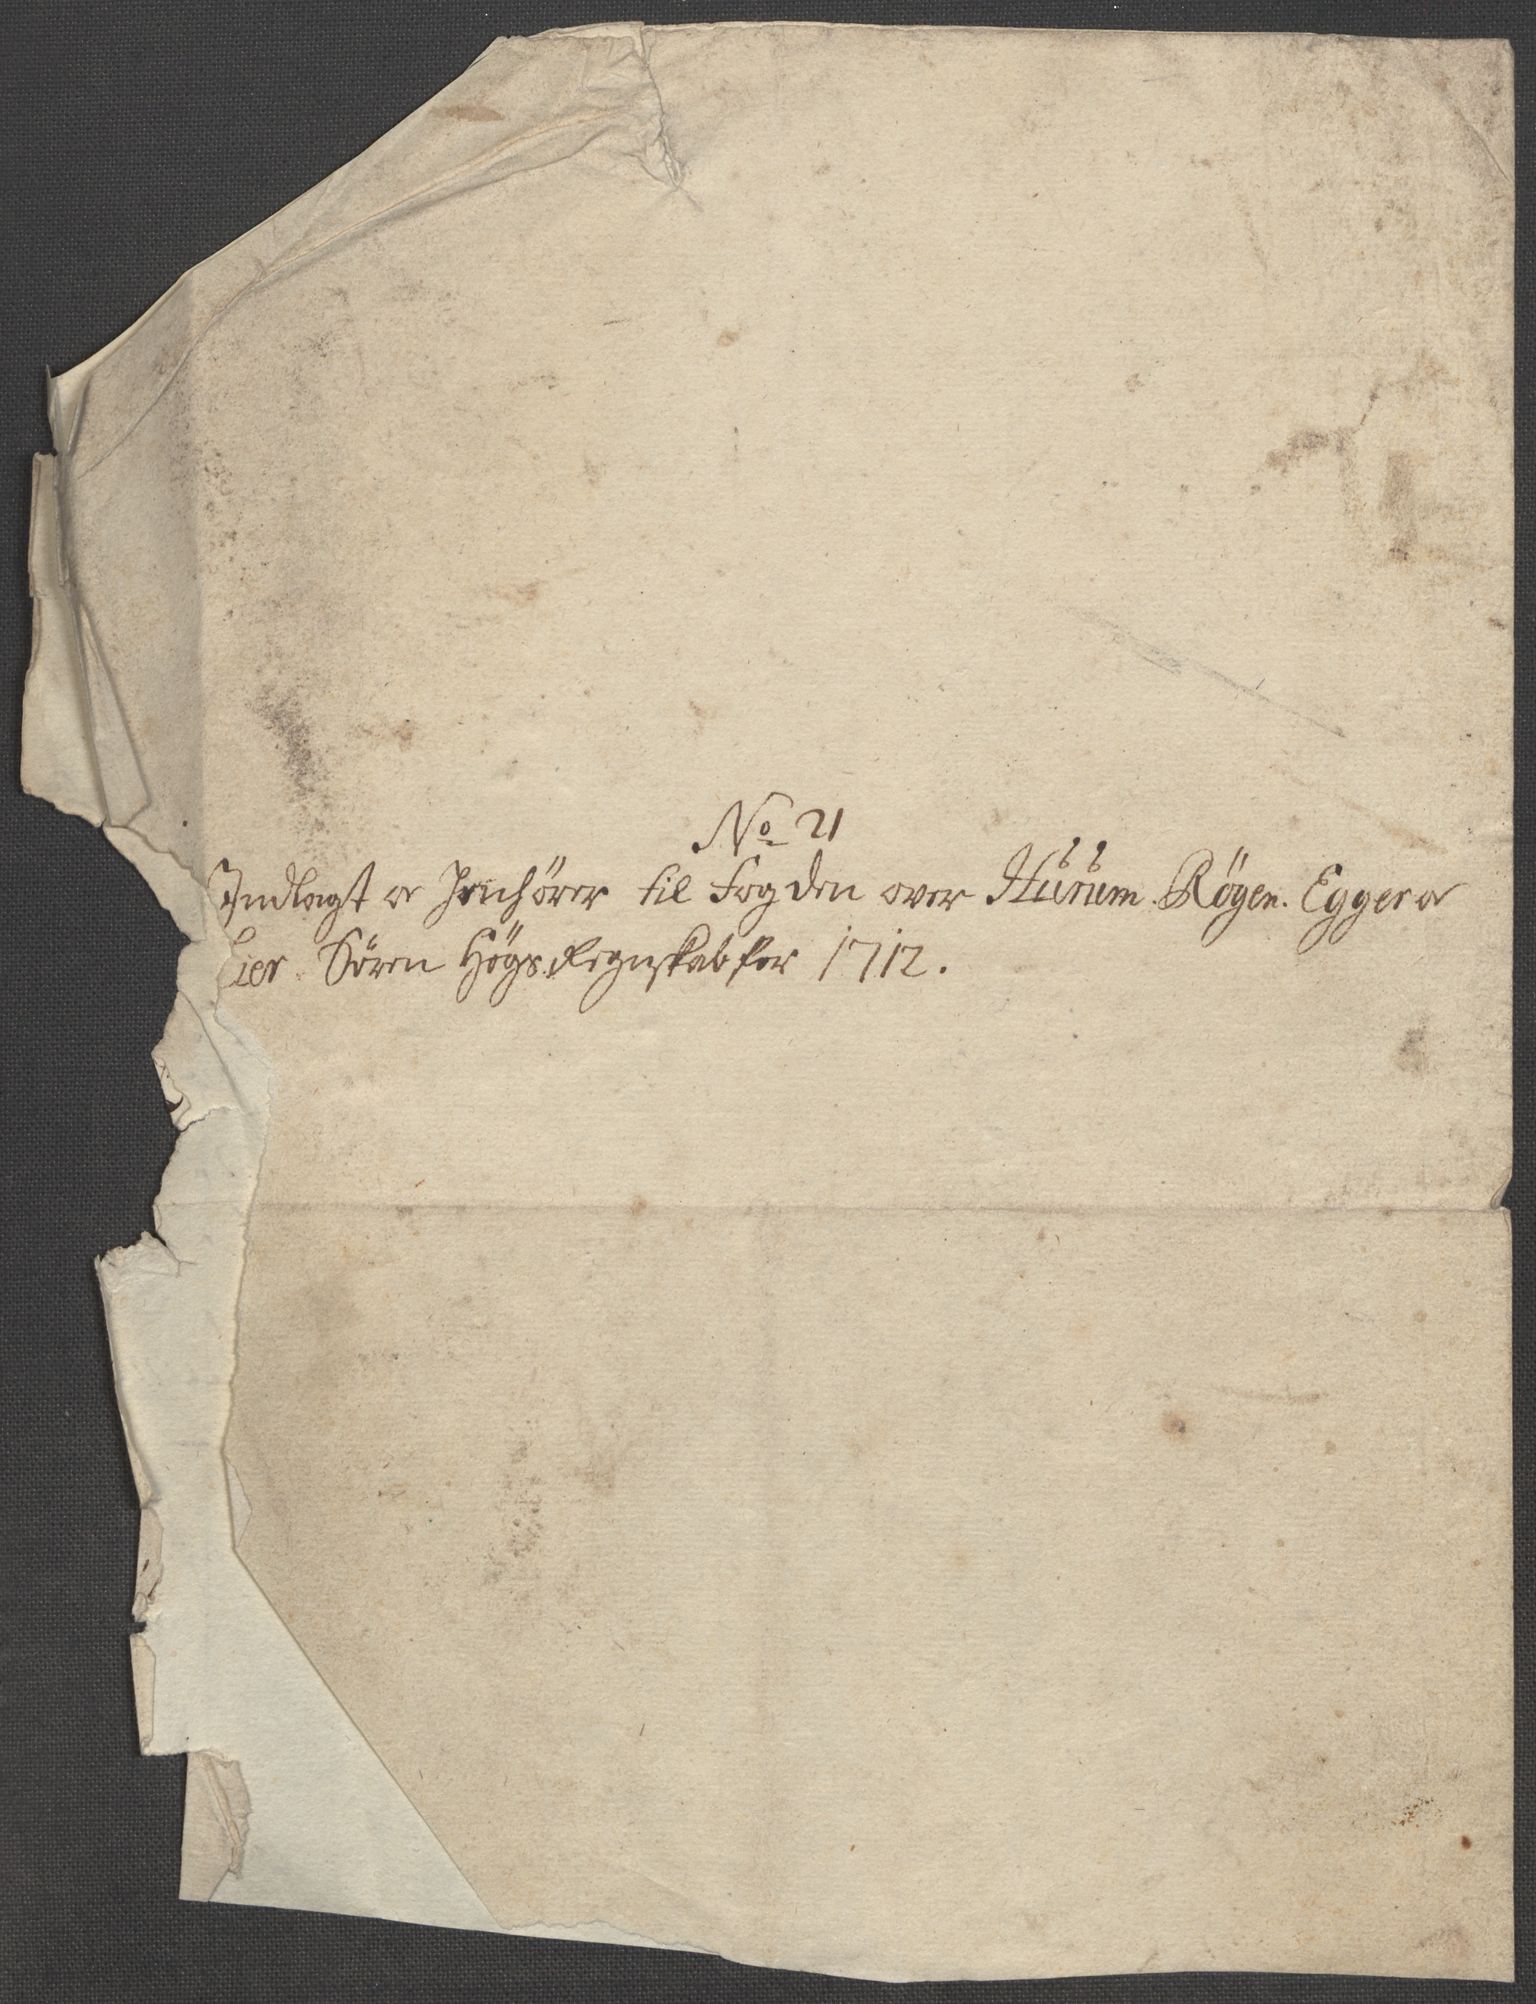 No 21
Indlagt og henhører til Fogden over Hurum. Røgen. Egger og
Lier Sören Högs Regnskab for 1712.